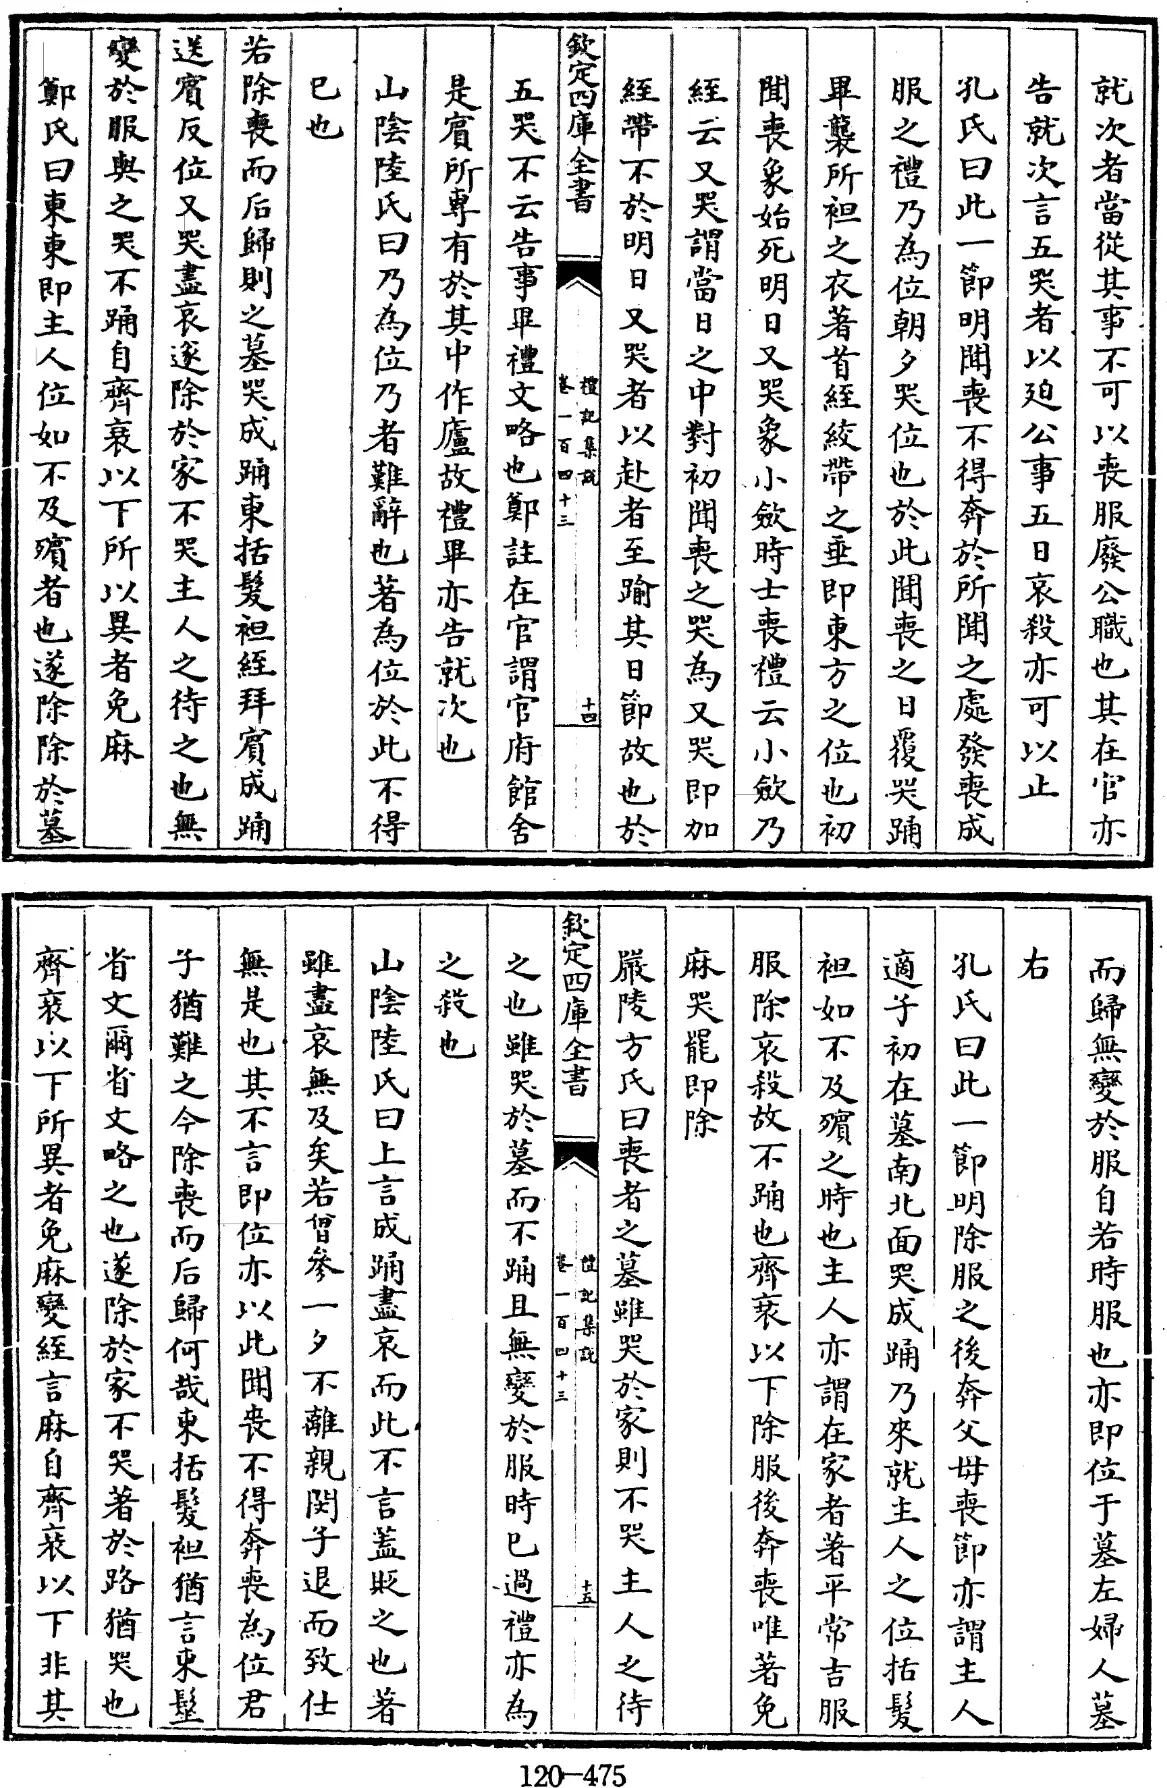 就次者當從其事不可以喪服廢公職也其在官亦
告就次言五哭者以廹公事五日哀殺亦可以止
孔氏曰此一節明聞喪不得奔於所聞之處發喪成
服之禮乃為位朝夕哭位也於此聞喪之日覆哭踊
畢襲所袒之衣著首絰絞帶之垂即東方之位也初
聞喪象始死明日又哭象小斂時士喪禮云小斂乃
絰云又哭謂當日之中對初聞喪之哭為又哭即加
絰帶不於明日又哭者以赴者至踰其日節故也於
欽定四庫全書
禮記集説
卷一百四十三
十四
五哭不云告事畢禮文略也鄭註在官謂官府館舍
是賓所專有於其中作廬故禮畢亦告就次也
山陰陸氏曰乃為位乃者難辭也著為位於此不得
已也
若除喪而后歸則之墓哭成踊東括髮袒絰拜賓成踊
送賓反位又哭盡哀遂除於家不哭主人之待之也無
變於服與之哭不踊自齊衰以下所以異者免麻
鄭氏曰東東即主人位如不及殯者也遂除除於墓
而歸無變於服自若時服也亦即位于墓左婦人墓
右
孔氏曰此一節明除服之後奔父母喪節亦謂主人
適子初在墓南北面哭成踊乃來就主人之位括髮
袒如不及殯之時也主人亦謂在家者著平常吉服
服除哀殺故不踊也齊衰以下除服後奔喪唯著免
麻哭罷即除
嚴陵方氏曰喪者之墓雖哭於家則不哭主人之待
欽定四庫全書
禮記集説
卷一百四十三
十五
之也雖哭於墓而不踊且無變於服時已過禮亦為
之殺也
山陰陸氏曰上言成踊盡哀而此不言蓋貶之也著
雖盡哀無及矣若曾參一夕不離親閔子退而致仕
無是也其不言即位亦以此聞喪不得奔喪為位君
子猶難之今除喪而后歸何哉東括髮袒猶言東髽
省文爾省文略之也遂除於家不哭著於路猶哭也
齊衰以下所異者免麻變絰言麻自齊衰以下非其
120-475